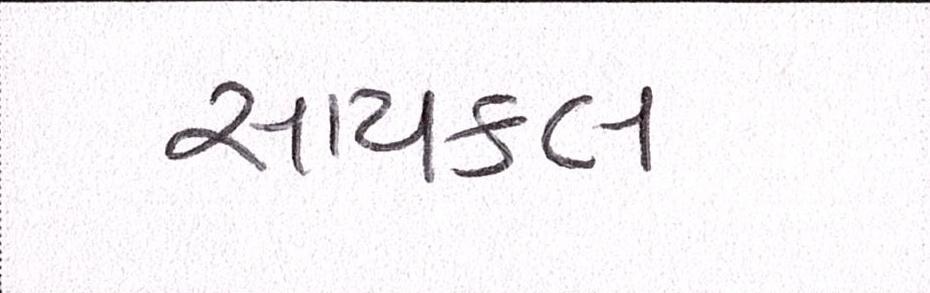 સાયકલ